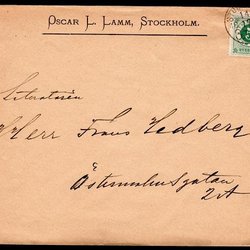 Oscar L. Lamm, Stockholm.
Literatören
Herr Frans Hedberg
Östermalmsgatan
2A